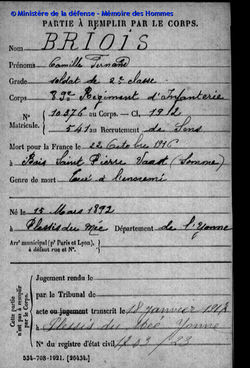 © Ministère de la défense - Mémoire des Hommes
PARTIE À REMPLIR PAR LE CORPS.
Nom BRIOIS
Prénoms Camille Fernand
Grade soldat de 2e classe
Corps 89e Régiment d'Infanterie
N° 10376 au Corps. — Cl. 1912
Matricule. 547 au Recrutement de Sens
Mort pour la France le 22 Octobre 1916
à Bois Saint Pierre Vaast (Somme)
Genre de mort Tué à l'ennemi
Né le 15 Mars 1892
à Plessis du Mée Département de l'Yonne
Arr' municipal (pr Paris et Lyon),
à défaut rue et N°.
Cette partie
n'est pas à remplir
par le Corps.
Jugement rendu le
par le Tribunal de
acte ou jugement transcrit le 18 janvier 1917
à Plessis du Mée Yonne
N° du registre d'état civil
534-708-1921. [26434.]